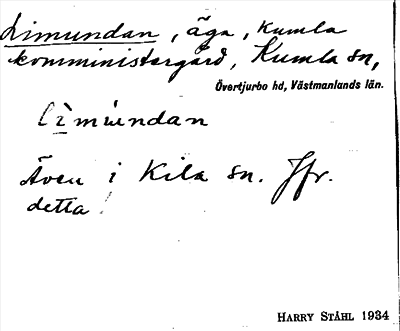 Limundan, äga, Kumla
komministergård, Kumla sn,
Övertjurbo hd, Västmanlands län.
lìmúndan
Även i Kila sn. Jfr.
detta!
HARRY STÅHL 1934